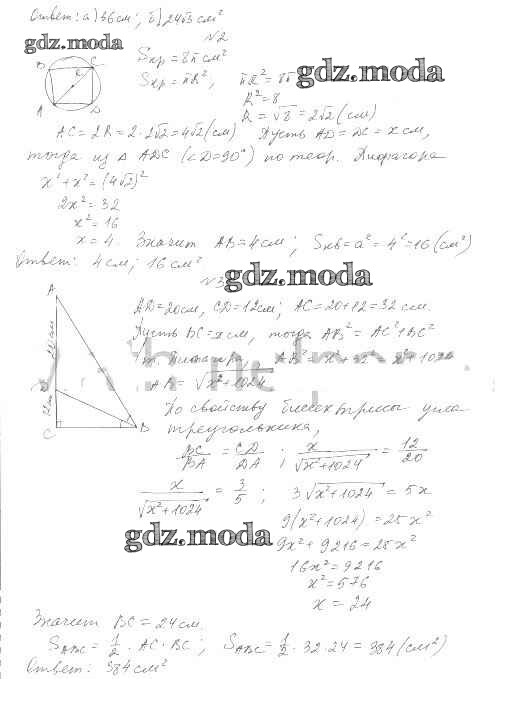 Ответ: а) 36 см; б) 24√3 см²
№2
gdz.moda
Sкр = 8π см²
Sкр = πR², πR² = 8π
gdz.moda
R² = 8
R = √8 = 2√2 (см)
B C
R
A D
AC = 2R = 2·2√2 = 4√2 (см) Пусть AD = DC = x см,
тогда из Δ ADC (∠D = 90°) по теор. Пифагора
x² + x² = (4√2)²
2x² = 32
x² = 16
x = 4. Значит AB = 4 см; Sкв = a² = 4² = 16 (см²)
Ответ: 4 см; 16 см²
№3
gdz.moda
A
AD = 20 см, CD = 12 см; AC = 20 + 12 = 32 см.
Пусть BC = x см, тогда AB² = AC² + BC²
т. Пифагора, AB² = x² + 32² = x² + 1024
AB = √x² + 1024
20 см
D
12 см
C B
По свойству биссектрисы угла
треугольника,
BC/BA = CD/DA ; x/√x² + 1024 = 12/20
x/√x² + 1024 = 3/5 ; 3√x² + 1024 = 5x
9(x² + 1024) = 25x²
gdz.moda
9x² + 9216 = 25x²
16x² = 9216
x² = 576
x = 24
Значит BC = 24 см.
SABC = 1/2 · AC · BC ; SABC = 1/2 · 32 · 24 = 384 (см²)
Ответ. 384 см²